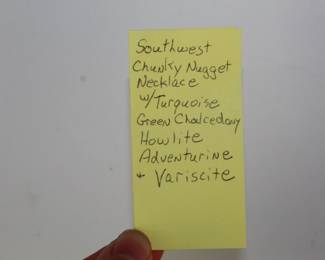 Southwest
Chunky Nugget
Necklace
w/Turquoise
Green Chalcedony
Howlite
Adventurine
+ Variscite